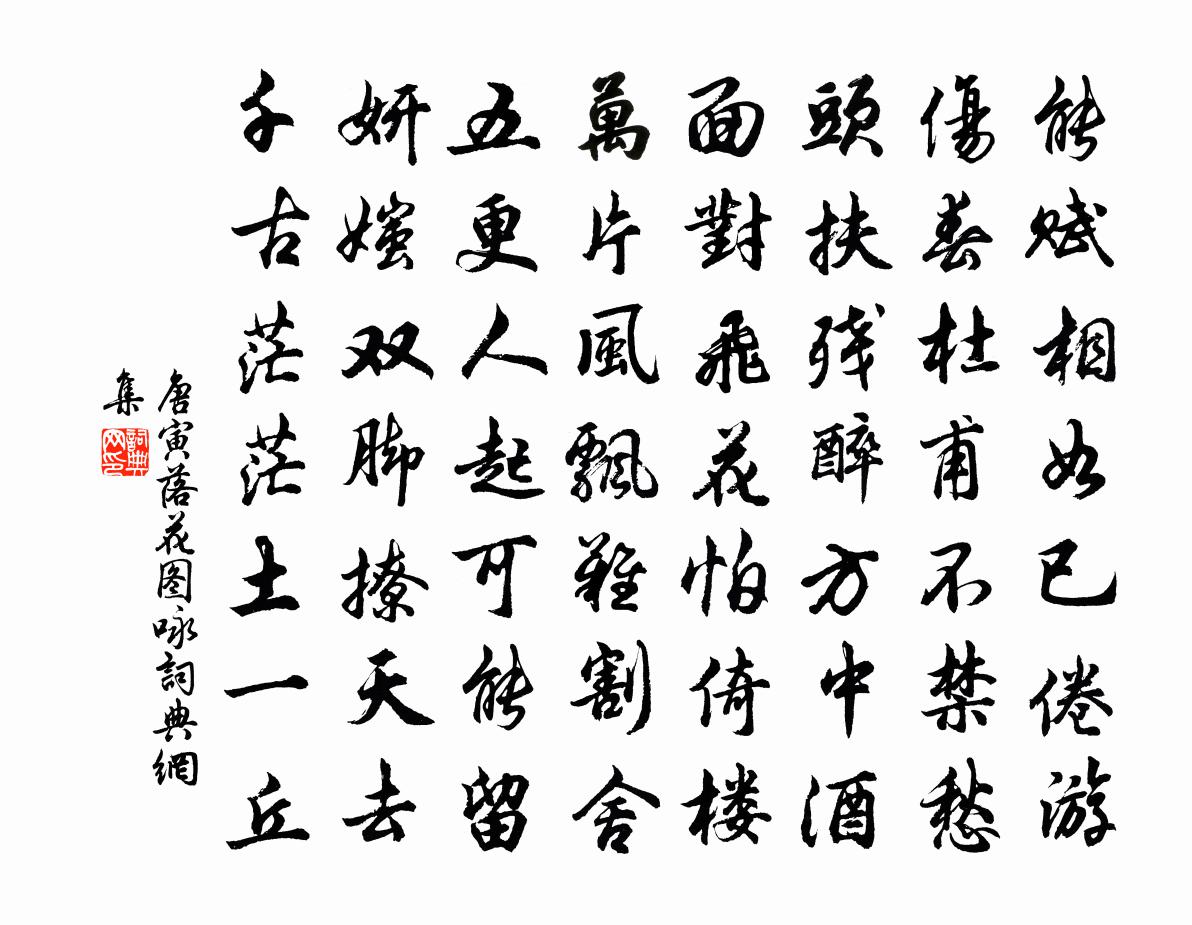 能赋相如已倦游
傷春杜甫不禁愁
頭扶残醉方中酒
面對飛花怕倚楼
萬片風飄難割舍
五更人起可能留
妍媸双脚撩天去
千古茫茫土一丘
唐寅落花图咏詞典網
集
詞典
网印